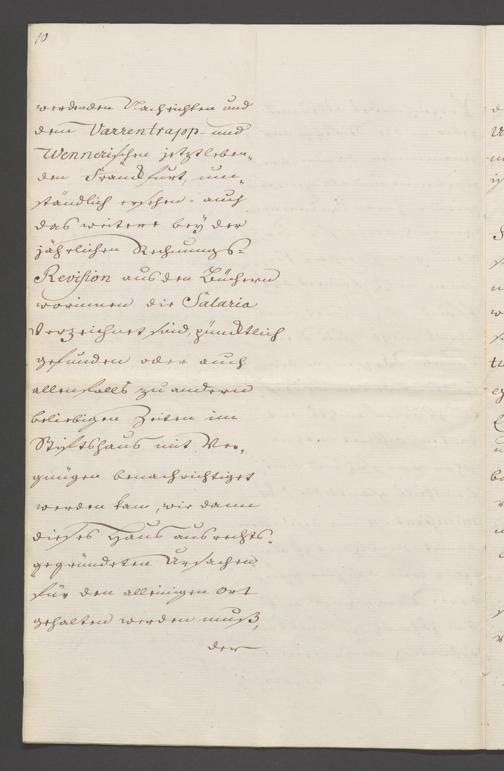 10
werdenden Nachrichten und
dem Varrentrapp- und
Wennerischen jetztleben-
den Frankfurt, um-
ständlich ersehen, auch
das weitere bey der
jährlichen Rechnungs-
Revision aus den Büchern
worinnen die Salaria
Verzeichnet sind, pünktlich
gefunden oder auch
allenfalls zu andern
beliebigen Zeiten im
Stiftshaus mit Ver-
gnügen benachrichtiget
werden kan, wie dann
dieses Haus aus rechts-
gegründeten Ursachen
für den alleinigen Ort
gehalten werden muß,
der